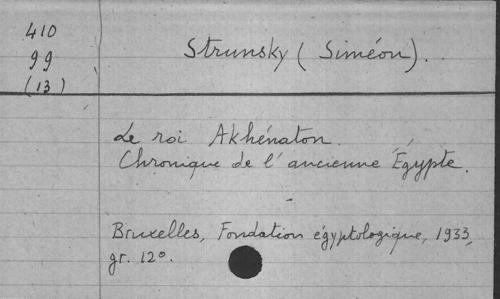 410
99
(13)
Strunsky (Siméon).
Le roi Akhénaton.
Chronique de l'ancienne Égypte.
Bruxelles, Fondation égyptologique, 1933,
gr. 12°.